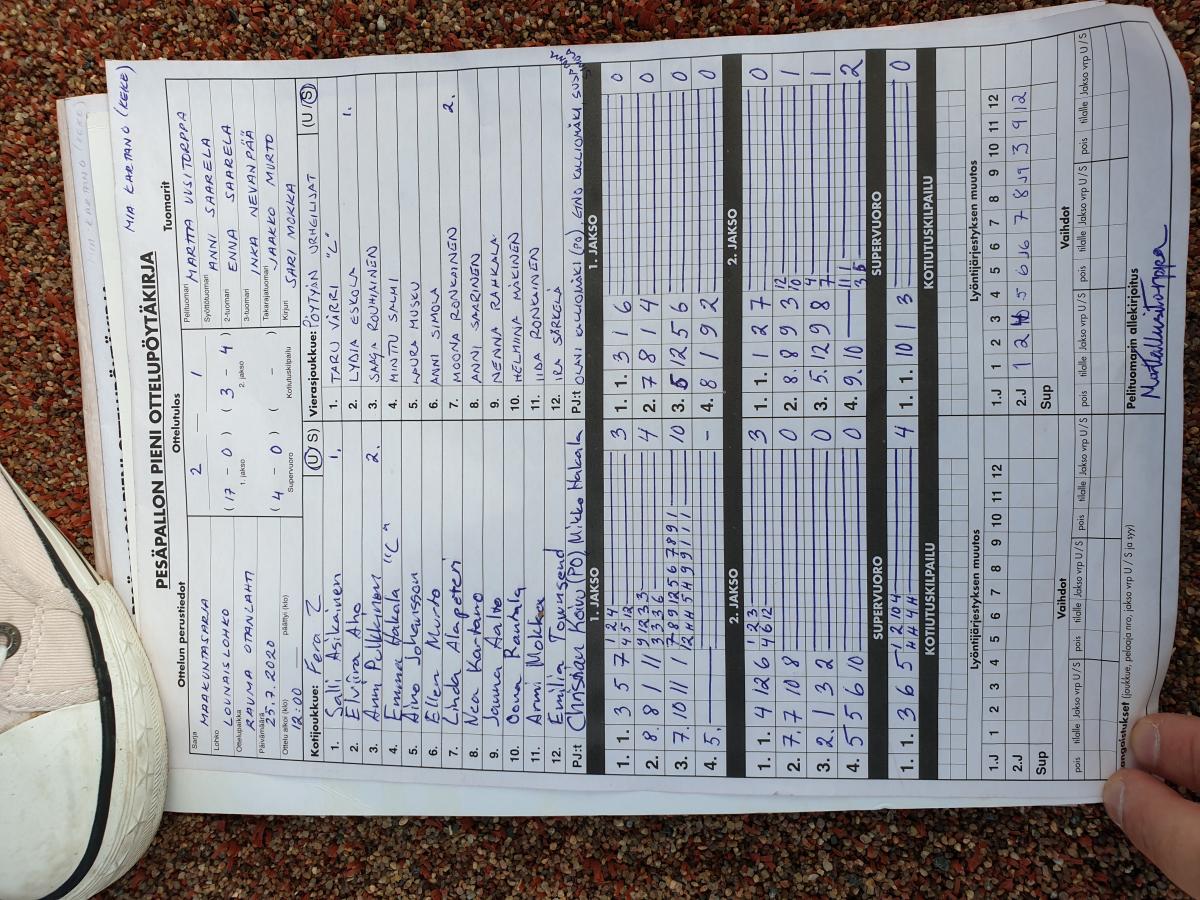 MIA KARTANO (KEKE)
PESÄPALLON PIENI OTTELUPÖYTÄKIRJA
Ottelun perustiedot
Sarja
MAAKUNTASARJA
Lohko
LOUNAISLOHKO
Ottelupaikka
RAUMA OTANLAHTI
Päivämäärä
25.7.2020
Ottelu alkoi (klo) päättyi (klo)
12:00
Ottelutulos
2 - 1
(17 - 0) (3 - 4)
1. jakso 2. jakso
(4 - 0) ( - )
Supervuoro Kotiutuskilpailu
Tuomarit
Pelituomari MARTTA UUSITORPPA
Syöttötuomari ANNI SAARELA
2-tuomari ENNA SAARELA
3-tuomari INKA NEVANPÄÄ
Takarajatuomari JAAKKO MURTO
Kirjuri SARI MOKKA
Kotijoukkue: Fera Z (U/S)
1. Salli Asikainen 1.
2. Elviira Aho
3. Anni Pelkkinen 2.
4. Emma Hakala "C"
5. Aino Johansson
6. Ellen Murto
7. Linda Alapeteri
8. Nea Kartano
9. Janna Aalto
10. Oona Rauhala
11. Armi Mokka
12. Emilia Townsend
PJ:t Christian Leiwo (PO) Mikko Hakala
Vierasjoukkue: PÖYTYÄN URHEILIJAT (U/S)
1. TARU VÄRRI "C"
2. LYDIA ESKOLA 1.
3. SAAGA ROUHIAINEN
4. MINTTU SALMI
5. LAURA MUSKU
6. ANNI SIMOLA
7. MOONA RONKAINEN 2.
8. ANNI SAARINEN
9. NENNA RAHKALA
10. HELMIINA MÄKINEN
11. IIDA RONKAINEN
12. IRA SÄRKELÄ
PJ:t OLAVI KALLIOMÄKI (PO), EINO KALLIOMÄKI,
1. JAKSO
1. 1. 3 5 7 3
2. 8. 8 1 11 4
3. 7. 10 11 1 10
4. 5. -
2. JAKSO
1. 1. 4 12 6 3
2. 7. 7 10 8 0
3. 2. 1 3 2 0
4. 5 5 6 10 0
SUPERVUORO
1. 1. 3 6 5 4
KOTIUTUSKILPAILU
1. JAKSO
1. 1. 3 1 6 0
2. 7 8 1 4 0
3. 5 12 5 6 0
4. 8 1 9 2 0
2. JAKSO
1. 1. 1 2 7 0
2. 8. 8 9 3 1
3. 5. 12 9 8 1
4. 9. 10 2
SUPERVUORO
1. 1. 10 1 3 0
KOTIUTUSKILPAILU
Lyöntijärjestyksen muutos
1.J 1 2 3 4 5 6 7 8 9 10 11 12
2.J
Sup
Vaihdot
pois tilalle Jakso vrp U/S pois tilalle Jakso vrp U/S pois tilalle Jakso vrp U/S
Lyöntijärjestyksen muutos
1.J 1 2 3 4 5 6 7 8 9 10 11 12
2.J
Sup
Vaihdot
pois tilalle Jakso vrp U/S pois tilalle Jakso vrp U/S pois tilalle Jakso vrp U/S
(joukkue, pelaaja nro, jakso vrp U / S ja syy)
Pelituomarin allekirjoitus